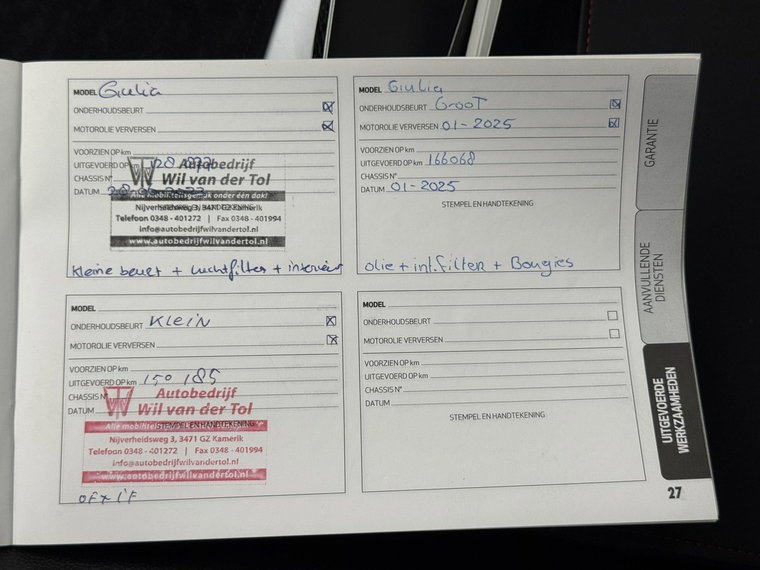 MODEL Giulia
ONDERHOUDSBEURT
MOTOROLIE VERVERSEN
VOORZIEN OP km
UITGEVOERD OP km
CHASSIS N°
DATUM
Autobedrijf
Wil van der Tol
Alle mobiliteitsgemak onder één dak!
Nijverheidsweg 3, 3471 GZ Kamerik
Telefoon 0348 - 401272 | Fax 0348 - 401994
info@autobedrijfwilvandertol.nl
www.autobedrijfwilvandertol.nl
kleine beurt + luchtfilter + interieur
MODEL
ONDERHOUDSBEURT Klein
MOTOROLIE VERVERSEN
VOORZIEN OP km
UITGEVOERD OP km 150 185
CHASSIS N°
DATUM
Autobedrijf
Wil van der Tol
STEMPEL EN HANDTEKENING
Nijverheidsweg 3, 3471 GZ Kamerik
Telefoon 0348 - 401272 | Fax 0348 - 401994
info@autobedrijfwilvandertol.nl
www.autobedrijfwilvandertol.nl
MODEL Giulia
ONDERHOUDSBEURT Groot
MOTOROLIE VERVERSEN 01-2025
VOORZIEN OP km
UITGEVOERD OP km 166068
CHASSIS N°
DATUM 01-2025
STEMPEL EN HANDTEKENING
olie + int.filter + Bougies
MODEL
ONDERHOUDSBEURT
MOTOROLIE VERVERSEN
VOORZIEN OP km
UITGEVOERD OP km
CHASSIS N°
DATUM
STEMPEL EN HANDTEKENING
GARANTIE
AANVULLENDE
DIENSTEN
UITGEVOERDE
WERKZAAMHEDEN
27